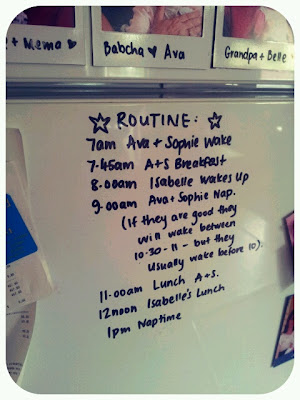 + Mema ♥
Babcha ♥ Ava
Grandpa + Belle ♥
☆ ROUTINE: ☆
7am Ava + Sophie Wake
7.45am A+S Breakfast
8.00am Isabelle Wakes Up
9.00am Ava + Sophie Nap.
(If they are good they
will wake between
10.30 - 11 - but they
usually wake before 10).
11.00am Lunch A+S.
12noon Isabelle's Lunch
1pm Naptime